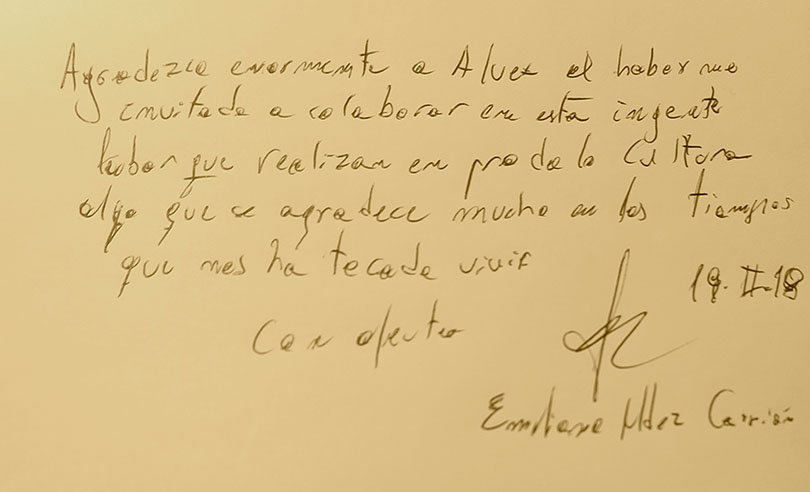 Agradezco enormemente a Alvex el haberme
invitado a colaborar en esta ingente
labor que realizan en pro de la Cultura
algo que se agradece mucho en los tiempos
que nos ha tocado vivir
19.II.18
Con afecto
Emiliano Mdez Carrión